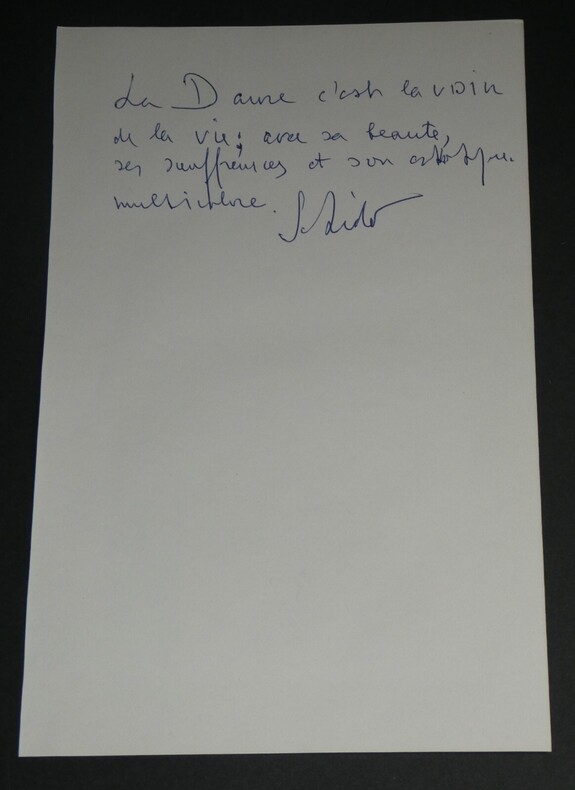 La Danse c'est la voix
de la vie; avec sa beauté,
ses souffrances et son
multicolore.